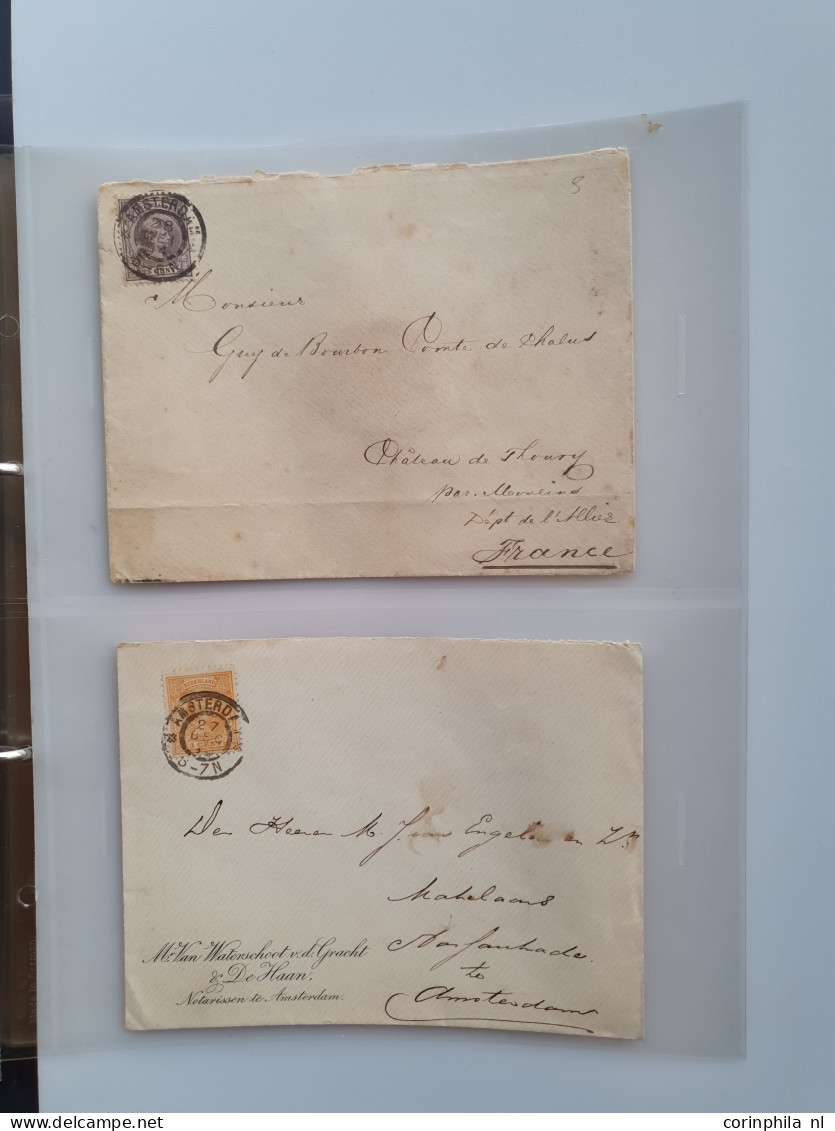 AMSTERDAM
28
Monsieur
Guy de Bourbon Comte de Chalus
Château de Thoury
par. Moulins
Dépt de l'Allier
France
NEDERLAND
AMSTERDA
27
DEC
6-7N
Den Heeren M. J. van Engelen en Zn
Makelaars
te
Amsterdam
Mr. Van Waterschoot v.d. Gracht
& De Haan,
Notarissen te Amsterdam.
www.corinphila nl